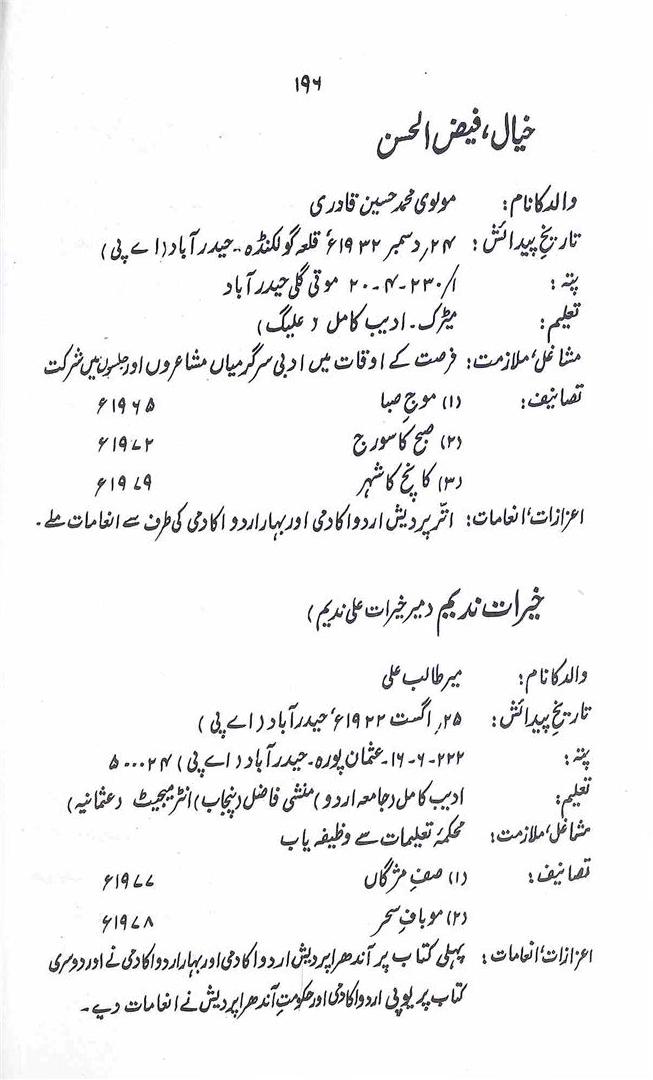 ۱۹۶
خیال، فیض الحسن
والد کا نام: مولوی محمد حسین قادری
تاریخِ پیدائش: ۲۴؍ دسمبر ۱۹۳۲ء قلعہ گولکنڈہ۔ حیدرآباد (اے پی)
پتہ: ۲۰-۴-۲۳۰/۱ موتی گلی حیدرآباد
تعلیم: میٹرک۔ ادیب کامل (علیگ)
مشاغل، ملازمت: فرصت کے اوقات میں ادبی سرگرمیاں مشاعروں اور جلسوں میں شرکت
تصانیف: (۱) موجِ صبا ۱۹۶۵ء
(۲) صبح کا سورج ۱۹۷۲ء
(۳) کانچ کا شہر ۱۹۷۹ء
اعزازات، انعامات: اتر پردیش اردو اکادمی اور بہار اردو اکادمی کی طرف سے انعامات ملے۔
خیرات ندیم (میر خیرات علی ندیم)
والد کا نام: میر طالب علی
تاریخِ پیدائش: ۲۵؍ اگست ۱۹۲۲ء، حیدرآباد (اے پی)
پتہ: ۲۲۲-۶-۱۶۔ عثمان پورہ۔ حیدرآباد (اے پی) ۵۰۰۰۲۴
تعلیم: ادیب کامل (جامعہ اردو) منشی فاضل (پنجاب) انٹرمیجیٹ (عثمانیہ)
مشاغل، ملازمت: محکمۂ تعلیمات سے وظیفہ یاب
تصانیف: (۱) صفِ مژگاں ۱۹۷۷ء
(۲) موبافِ سحر ۱۹۷۸ء
اعزازات، انعامات: پہلی کتاب پر آندھرا پردیش اردو اکادمی اور بہار اردو اکادمی نے اور دوسری
کتاب پر یوپی اردو اکادمی اور حکومتِ آندھرا پردیش نے انعامات دیے۔